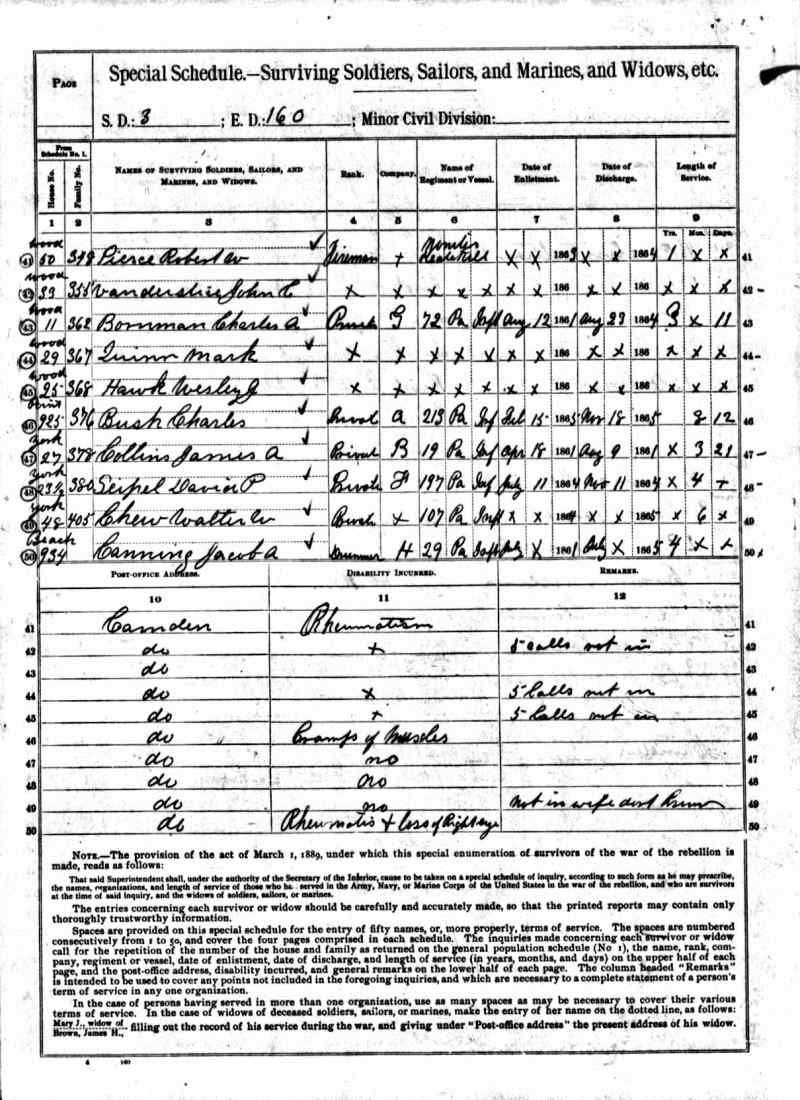 PAGE
Special Schedule.—Surviving Soldiers, Sailors, and Marines, and Widows, etc.
S. D.: 3 ; E. D.: 160 ; Minor Civil Division:
From Schedule No. 1.
House No. Family No. NAMES OF SURVIVING SOLDIERS, SAILORS, AND MARINES, AND WIDOWS. Rank. Company. Name of Regiment or Vessel. Date of Enlistment. Date of Discharge. Length of Service.
1 2 3 4 5 6 7 8 9
Yrs. Mos. Days.
wood
41 50 Pierce Robert W Fireman + X X 1863 X X 1864 1 X X 41
wood
42 39 355 Vanderslice John C X X X X X X X 186 X X 186 X X X 42
wood
43 11 362 Bornman Charles A Private G 72 Pa Inft Aug 12 1861 Aug 23 1864 3 X 11 43
wood
44 29 367 Quinn Mark X X X X X X X 186 X X 186 X X X 44
wood
45 25 368 Hawk Wesley J X X X X X X X 186 X X 186 X X X 45
Point
46 925 376 Bush Charles Privat A 213 Pa Inf Feb 15 1865 Nov 18 1865 8 12 46
York
47 27 378 Collins James A Privat B 19 Pa Inf Apr 18 1861 Aug 9 1861 X 3 21 47
York
48 23½ 380 Seipel David P Private F 197 Pa Inf July 11 1864 Nov 11 1864 X 4 + 48
York
49 48 405 Chew Walter W Privat X 107 Pa Inft X X 1864 X X 1865 X 6 X 49
Beach
50 934 Canning Jacob A Drummer H 29 Pa Inft July X 1861 July X 1865 4 X X 50
POST-OFFICE ADDRESS. DISABILITY INCURRED. REMARKS.
10 11 12
41 Camden Rheumatism 41
42 do + 5 calls not in 42
43 do 43
44 do X 5 Calls not in 44
45 do + 5 Calls not in 45
46 do Cramps of Muscles 46
47 do no 47
48 do no 48
49 do no Not in wife dont know 49
50 do Rheumatis + loss of Right eye 50
NOTE.—The provision of the act of March 1, 1889, under which this special enumeration of survivors of the war of the rebellion is
made, reads as follows:
That said Superintendent shall, under the authority of the Secretary of the Interior, cause to be taken on a special schedule of inquiry, according to such form as he may prescribe,
the names, organizations, and length of service of those who ha served in the Army, Navy, or Marine Corps of the United States in the war of the rebellion, and who are survivors
at the time of said inquiry, and the widows of soldiers, sailors, or marines.
The entries concerning each survivor or widow should be carefully and accurately made, so that the printed reports may contain only
thoroughly trustworthy information.
Spaces are provided on this special schedule for the entry of fifty names, or, more properly, terms of service. The spaces are numbered
consecutively from 1 to 50, and cover the four pages comprised in each schedule. The inquiries made concerning each survivor or widow
call for the repetition of the number of the house and family as returned on the general population schedule (No 1), the name, rank, com-
pany, regiment or vessel, date of enlistment, date of discharge, and length of service (in years, months, and days) on the upper half of each
page, and the post-office address, disability incurred, and general remarks on the lower half of each page. The column headed "Remarks"
is intended to be used to cover any points not included in the foregoing inquiries, and which are necessary to a complete statement of a person's
term of service in any one organization.
In the case of persons having served in more than one organization, use as many spaces as may be necessary to cover their various
terms of service. In the case of widows of deceased soldiers, sailors, or marines, make the entry of her name on the dotted line, as follows:
Mary J., widow of
Brown, James H., filling out the record of his service during the war, and giving under "Post-office address" the present address of his widow.